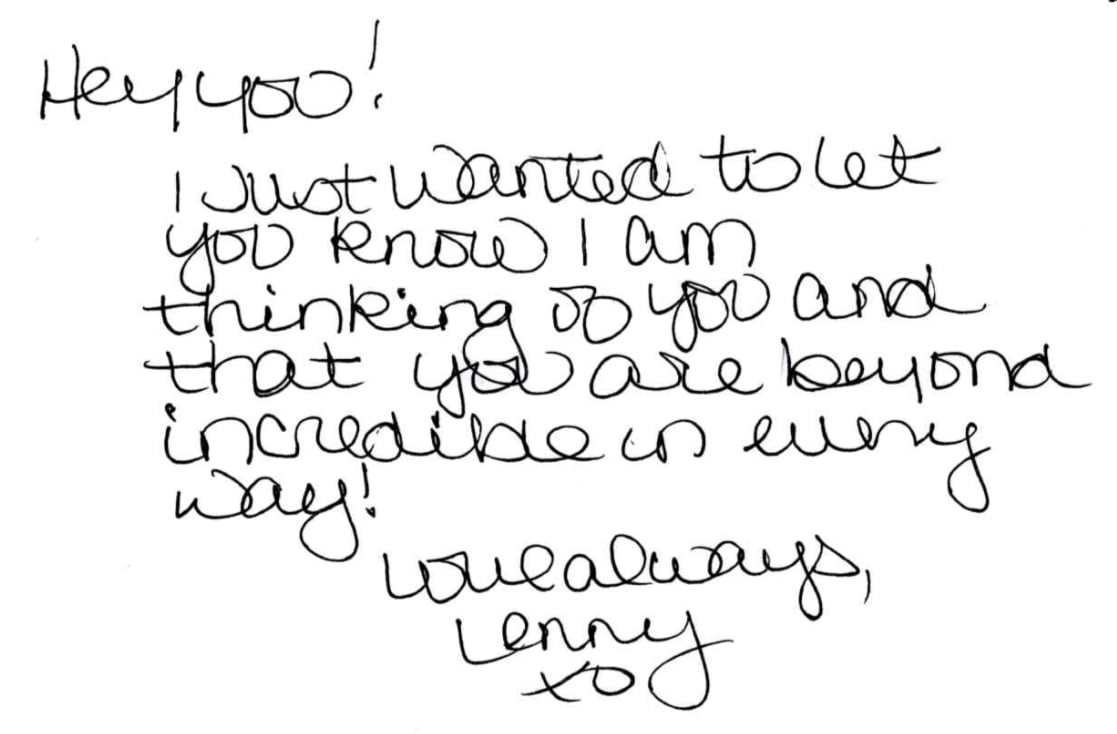 Hey you!
I just wanted to let
you know I am
thinking of you and
that you are beyond
incredible in every
way!
Love always,
Lenny
xo